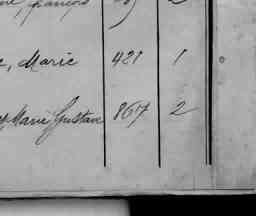 François
, Marie 421 1
Marie Gustave 867 2